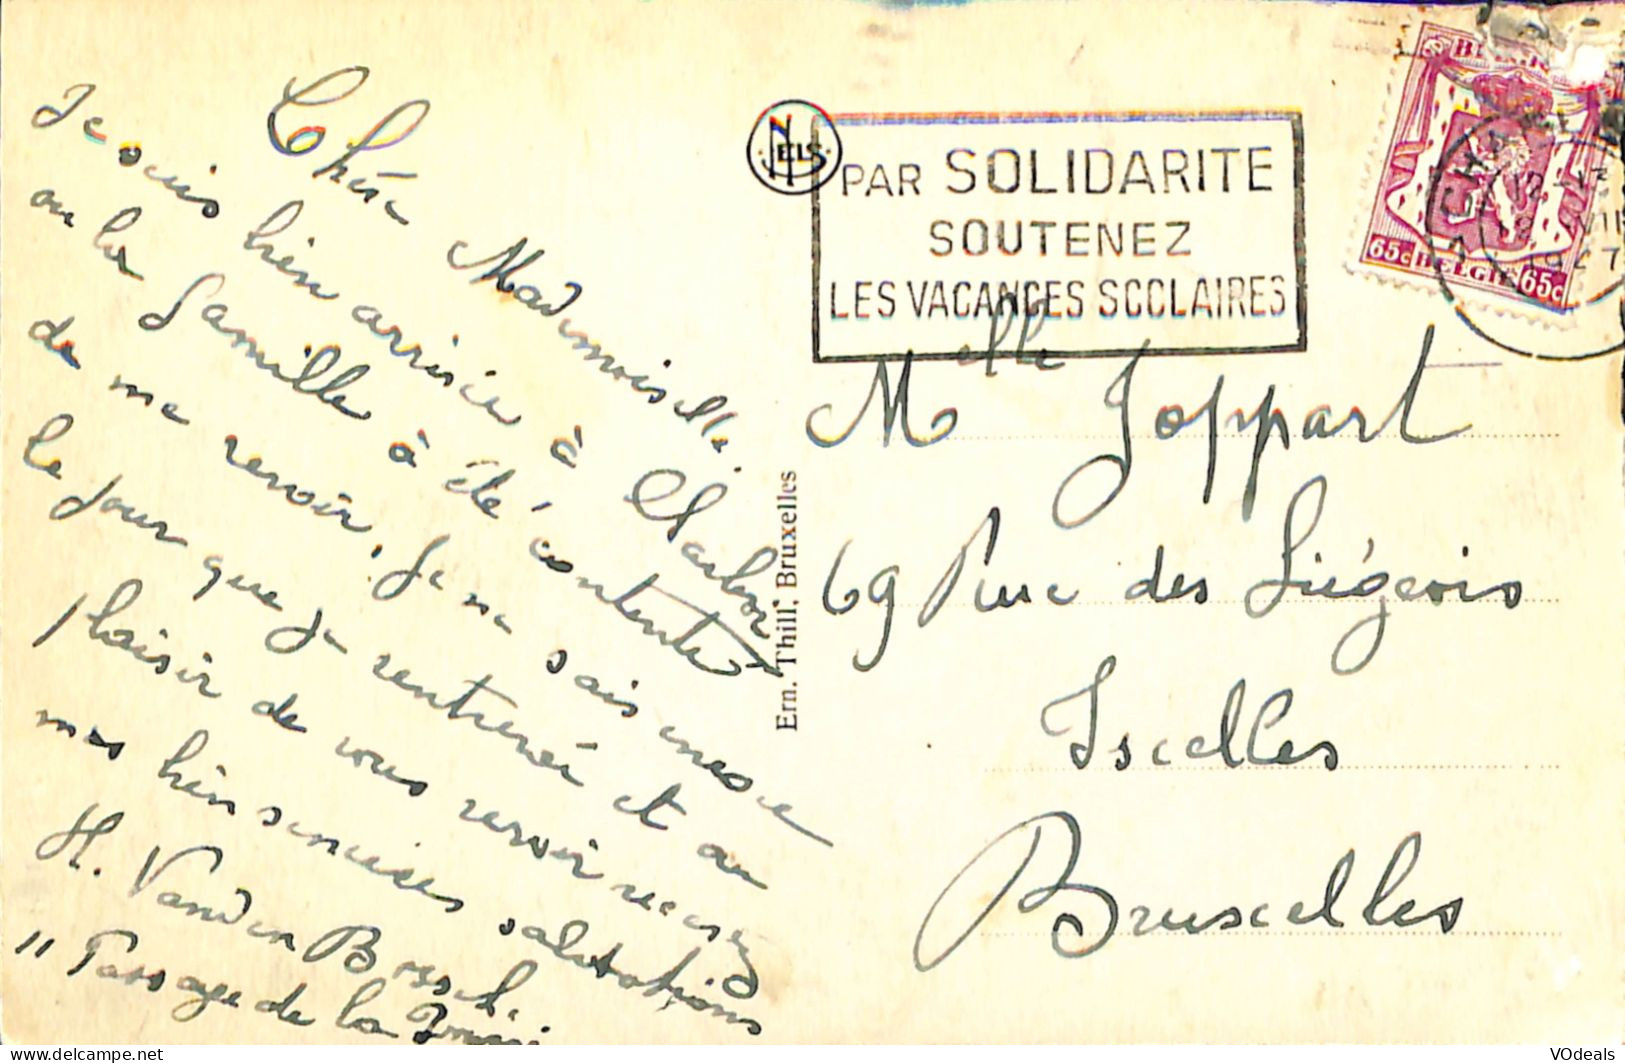 Chère Mademoiselle.
Je suis bien arrivée à Charleroi
ou la famille à été contente
de me revoir, Je ne sais encore
le jour que je rentrerai et au
plaisir de vous revoir recevez
mes bien sincères salutations
H. Vanden Bossche
11 Passage de la
NELS
PAR SOLIDARITE
SOUTENEZ
LES VACANCES SCOLAIRES
BELGIE
65c BELGIE 65c
12-13
Ern. Thill, Bruxelles
Melle Joppart
69 Rue des Liégeois
Ixelles
Bruxelles
VOdeals